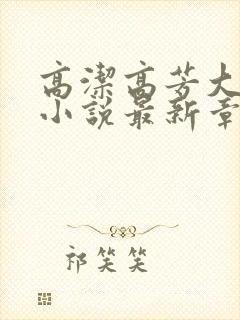 高潔高芳大
小說最新章
祁笑笑